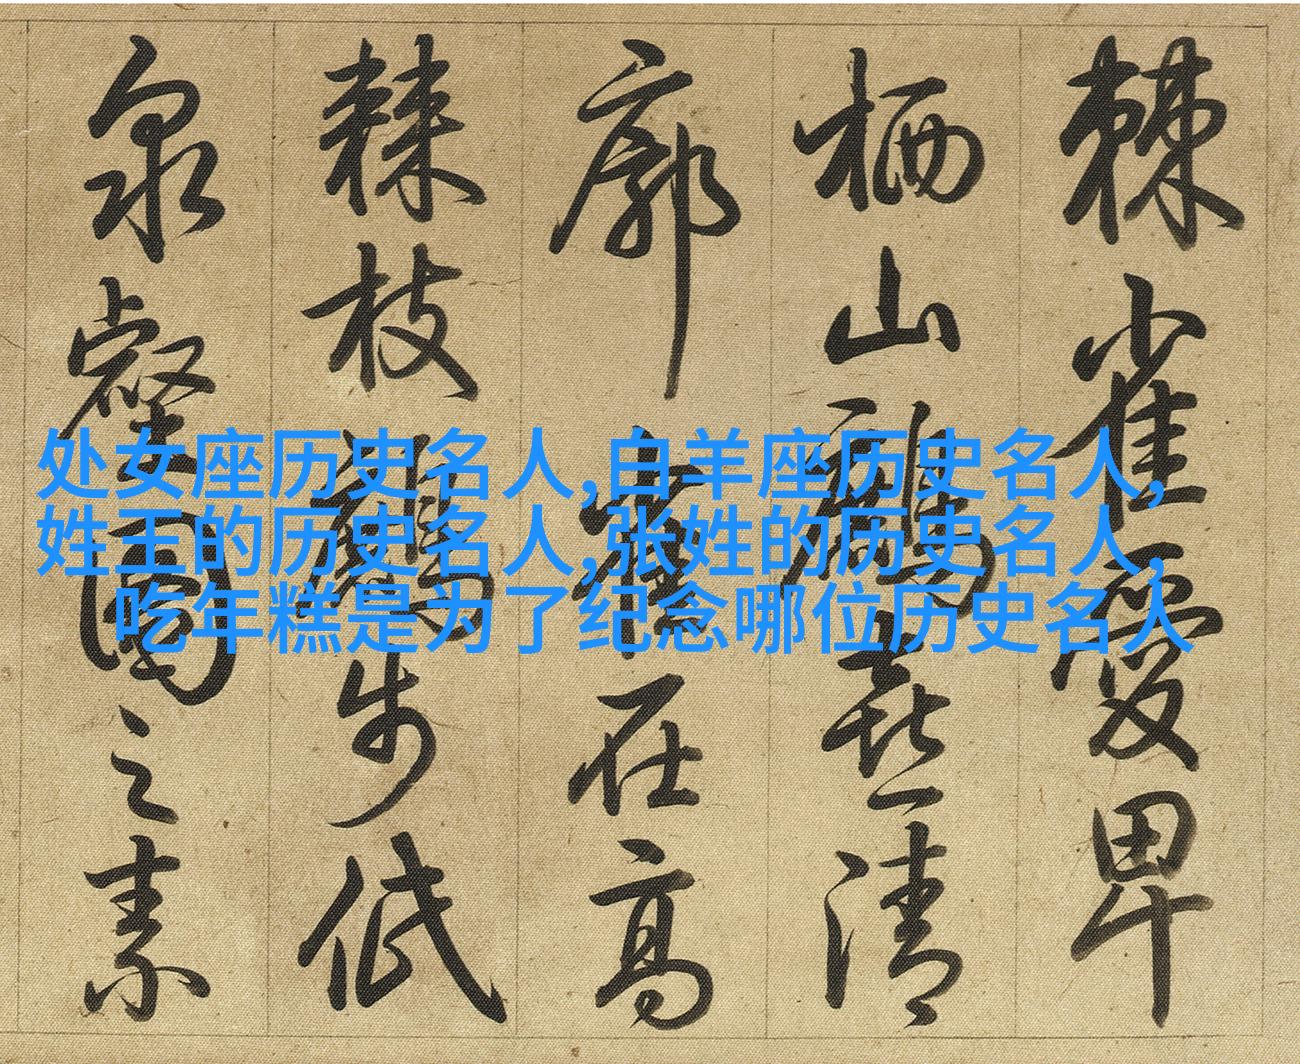 处女座历史名人,白羊座历史名人,
姓王的历史名人,张姓的历史名人,
吃年糕是为了纪念哪位历史名人
棘雀愛卑
栖山喜清
廓在高
棘枝步低
泉壑之素